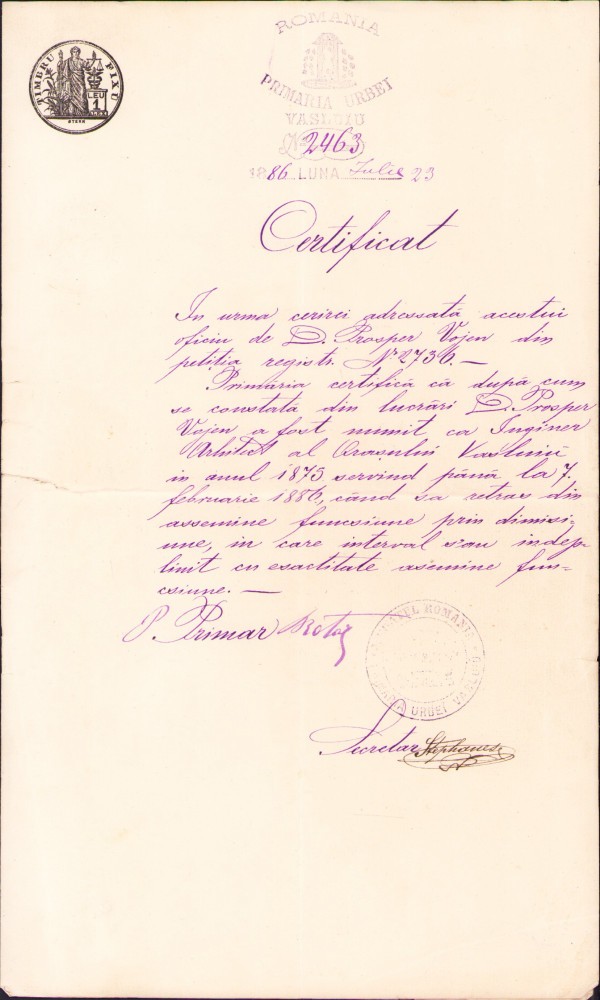 TIMBRU FIXU
1 LEU
STERN
ROMANIA
PRIMARIA URBEI
VASLUIU
No 2463
1886 LUNA Iulie 23
Certificat
In urma cerirei adressată acestui
oficiu de D. Prosper Vojen din
petitia registr. No 2736. —
Primăria certifică că după cum
se constată din lucrări D. Prosper
Vojen a fost numit ca Inginer
Arhitect al Orasului Vasluiŭ
in anul 1875 servind până la 7.
februarie 1886, când sa retras din
assemine funcsiune prin dimisi-
une, in care interval s'au indep-
linit cu esactitate asemine fun-
csiune. —
P. Primar
URBEI VASLUIU
Secretar